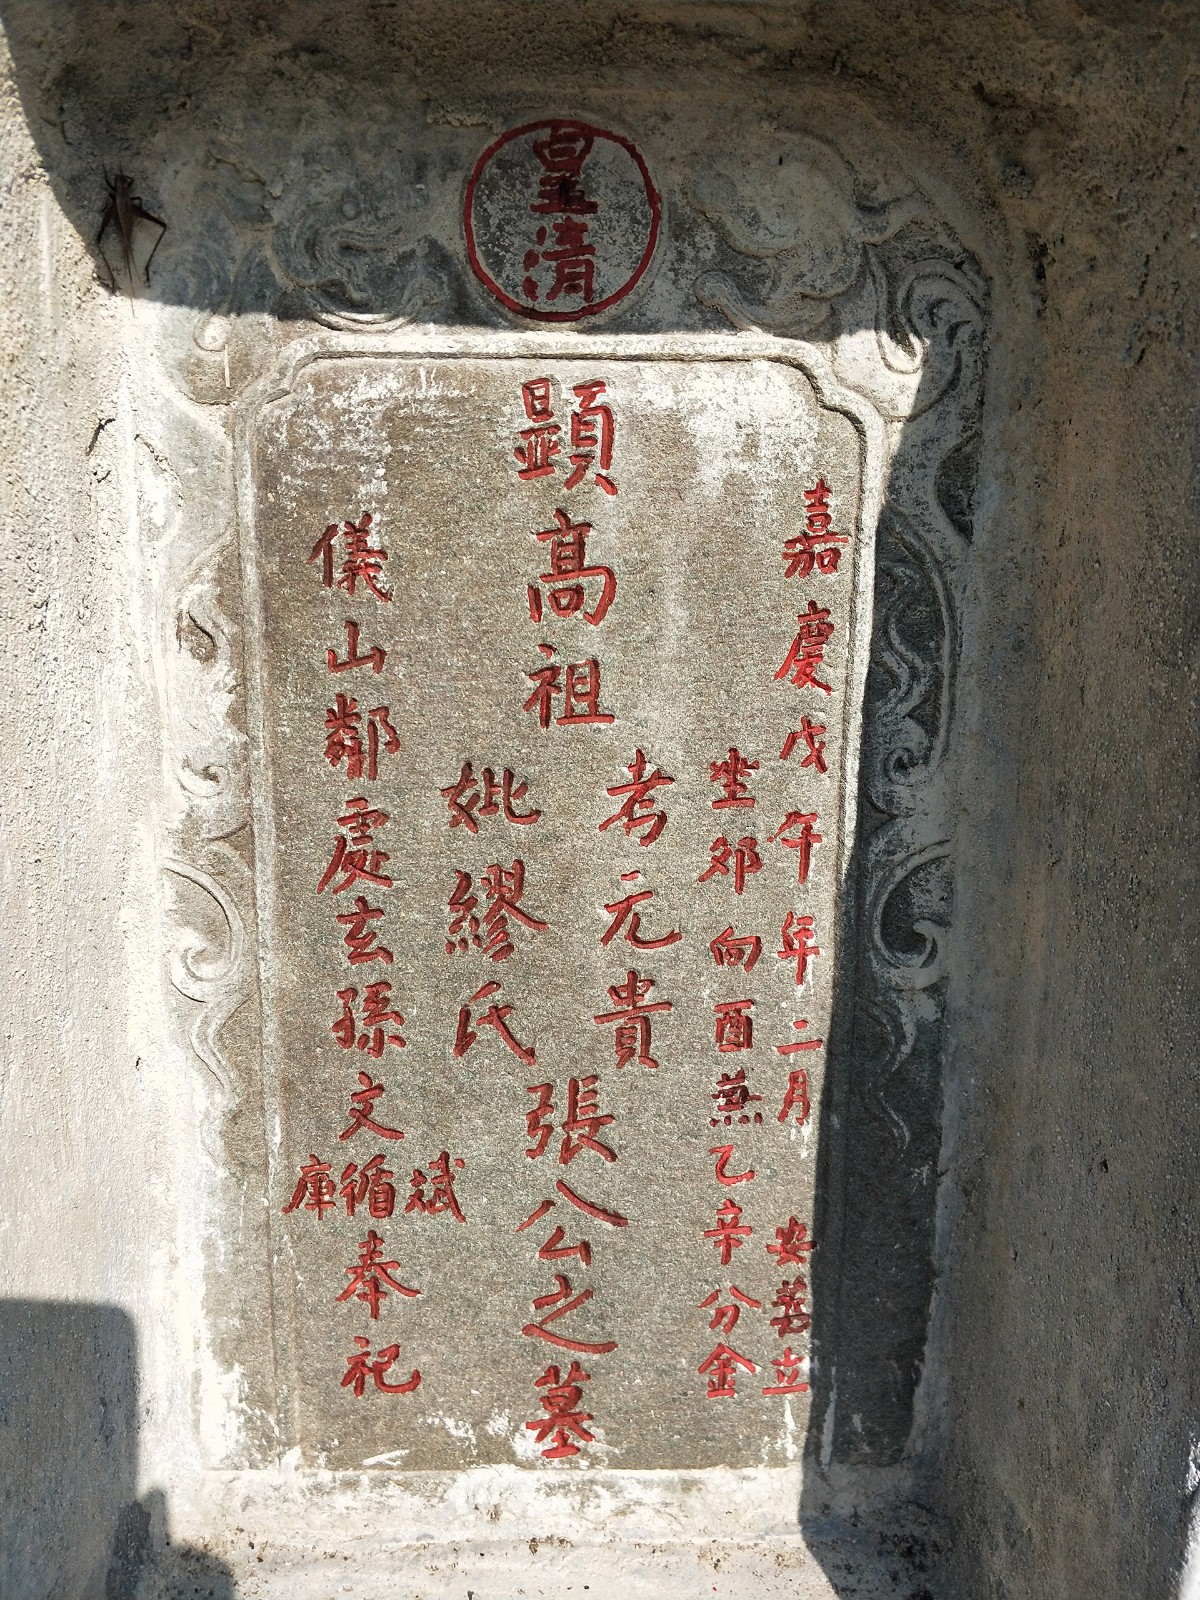 皇清
嘉慶戊午年二月 安葬立
坐夘向酉燕乙辛分金
顕高祖
考元貴
妣繆氏
張公之墓
儀山鄰處玄孫文
斌循庫
奉祀